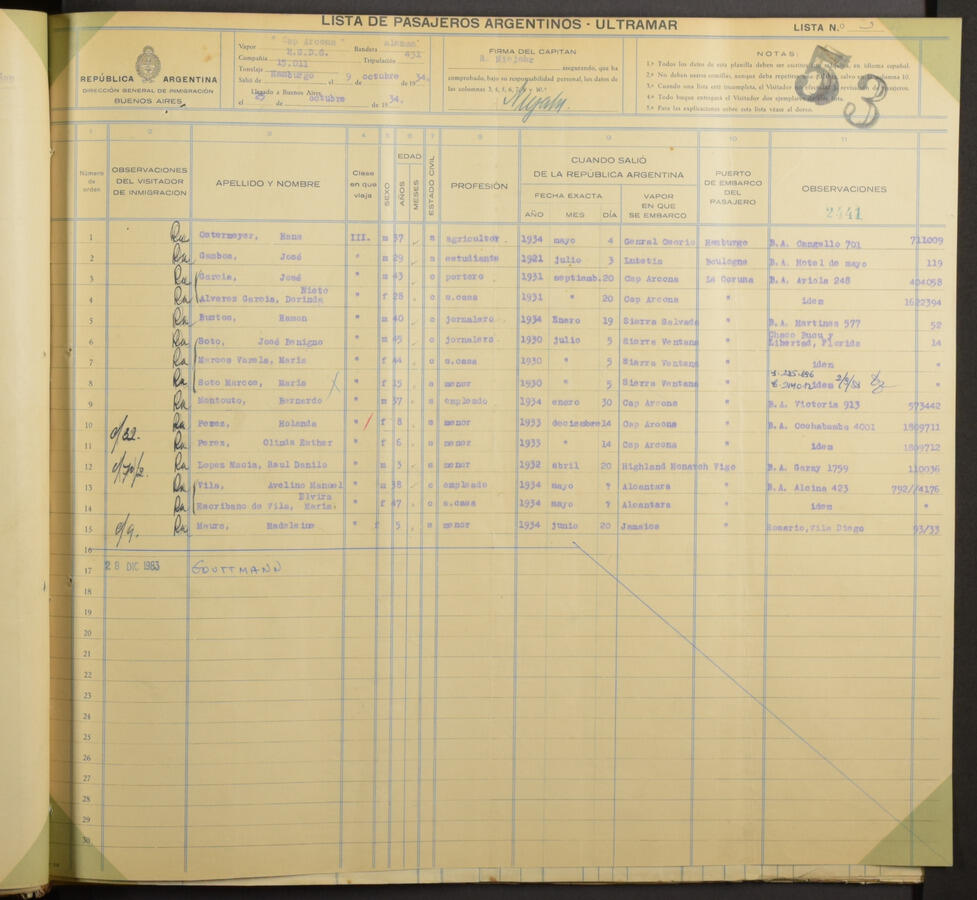 LISTA DE PASAJEROS ARGENTINOS - ULTRAMAR
LISTA N.o 3
REPÚBLICA ARGENTINA
DIRECCIÓN GENERAL DE INMIGRACIÓN
BUENOS AIRES
Vapor " Cap Arcona " Bandera aleman
Compañía H.S.D.G. Tripulación 431
Tonelaje 15.011
Salió de Hamburgo el 9 de octubre de 1934.
Llegado a Buenos Aires,
el 25 de octubre de 1934.
FIRMA DEL CAPITAN
R. Niejahr
asegurando, que ha
comprobado, bajo su responsabilidad personal, los datos de
las columnas 3, 4, 5, 6, 7, 8 y 10.
NOTAS:
1.ª Todos los datos de esta planilla deben ser en idioma español.
2.ª No deben usarse comillas, aunque deba repetirse salvo en columna 10.
3.ª Cuando una lista esté incompleta, el Visitador de pasajeros.
4.ª Todo buque entregará el Visitador dos ejemplares
5.ª Para las explicaciones sobre esta lista véase al dorso.
53
1 2 3 4 5 6 7 8 9 10 11
Número de orden
OBSERVACIONES DEL VISITADOR DE INMIGRACION
APELLIDO Y NOMBRE
Clase en que viaja
SEXO
EDAD
AÑOS
MESES
ESTADO CIVIL
PROFESIÓN
CUANDO SALIÓ DE LA REPUBLICA ARGENTINA
FECHA EXACTA
AÑO MES DÍA
VAPOR EN QUE SE EMBARCO
PUERTO DE EMBARCO DEL PASAJERO
OBSERVACIONES
2441
1 Ostermeyer, Hans III. m 37 s agricultor 1934 mayo 4 Genral Osorio Hamburgo B.A. Cangallo 701 711009
2 Gamboa, José " m 29 s estudiante 1921 julio 3 Lutetia Boulogne B.A. Hotel de mayo 119
3 Garcia, José " m 43 c portero 1931 septiemb. 20 Cap Arcona La Coruna B.A. Ariola 248 404058
4 Alvarez Garcia, Dorinda Nieto " f 28 c s.casa 1931 " 20 Cap Arcona " idem 1622394
5 Bustos, Ramon " m 40 c jornalero 1934 Enero 19 Sierra Salvada " B.A. Martinez 577 52
6 Soto, José Benigno " m 45 c jornalero 1930 julio 5 Sierra Ventana " Libertad, Florida 14
7 Marcos Varela, Maria " f 44 c s.casa 1930 " 5 Sierra Ventana " idem "
8 Soto Marcos, Maria " f 15 s menor 1930 " 5 Sierra Ventana " idem "
9 Montouto, Bernardo " m 37 s empleado 1934 enero 30 Cap Arcona " B.A. Victoria 913 573442
10 Perez, Holanda " f 8 s menor 1933 deciembre 14 Cap Arcona " B.A. Cochabamba 4001 1809711
11 Perez, Clinda Esther " f 6 s menor 1933 " 14 Cap Arcona " idem 1809712
12 Lopez Macia, Raul Danilo " m 3 s menor 1932 abril 20 Highland Monarch Vigo B.A. Garay 1759 110036
13 Vila, Avelino Manuel " m 38 c empleado 1934 mayo ? Alcantara " B.A. Alsina 423 792//4176
14 Escribano de Vila, Maria Elvira " f 47 c s.casa 1934 mayo ? Alcantara " idem "
15 Mauro, Madeleine " f 5 s menor 1934 junio 20 Jamaica " Rosario, Vila Diego 93/33
16
17 28 DIC 1983 GOUTTMANN
18
19
20
21
22
23
24
25
26
27
28
29
30